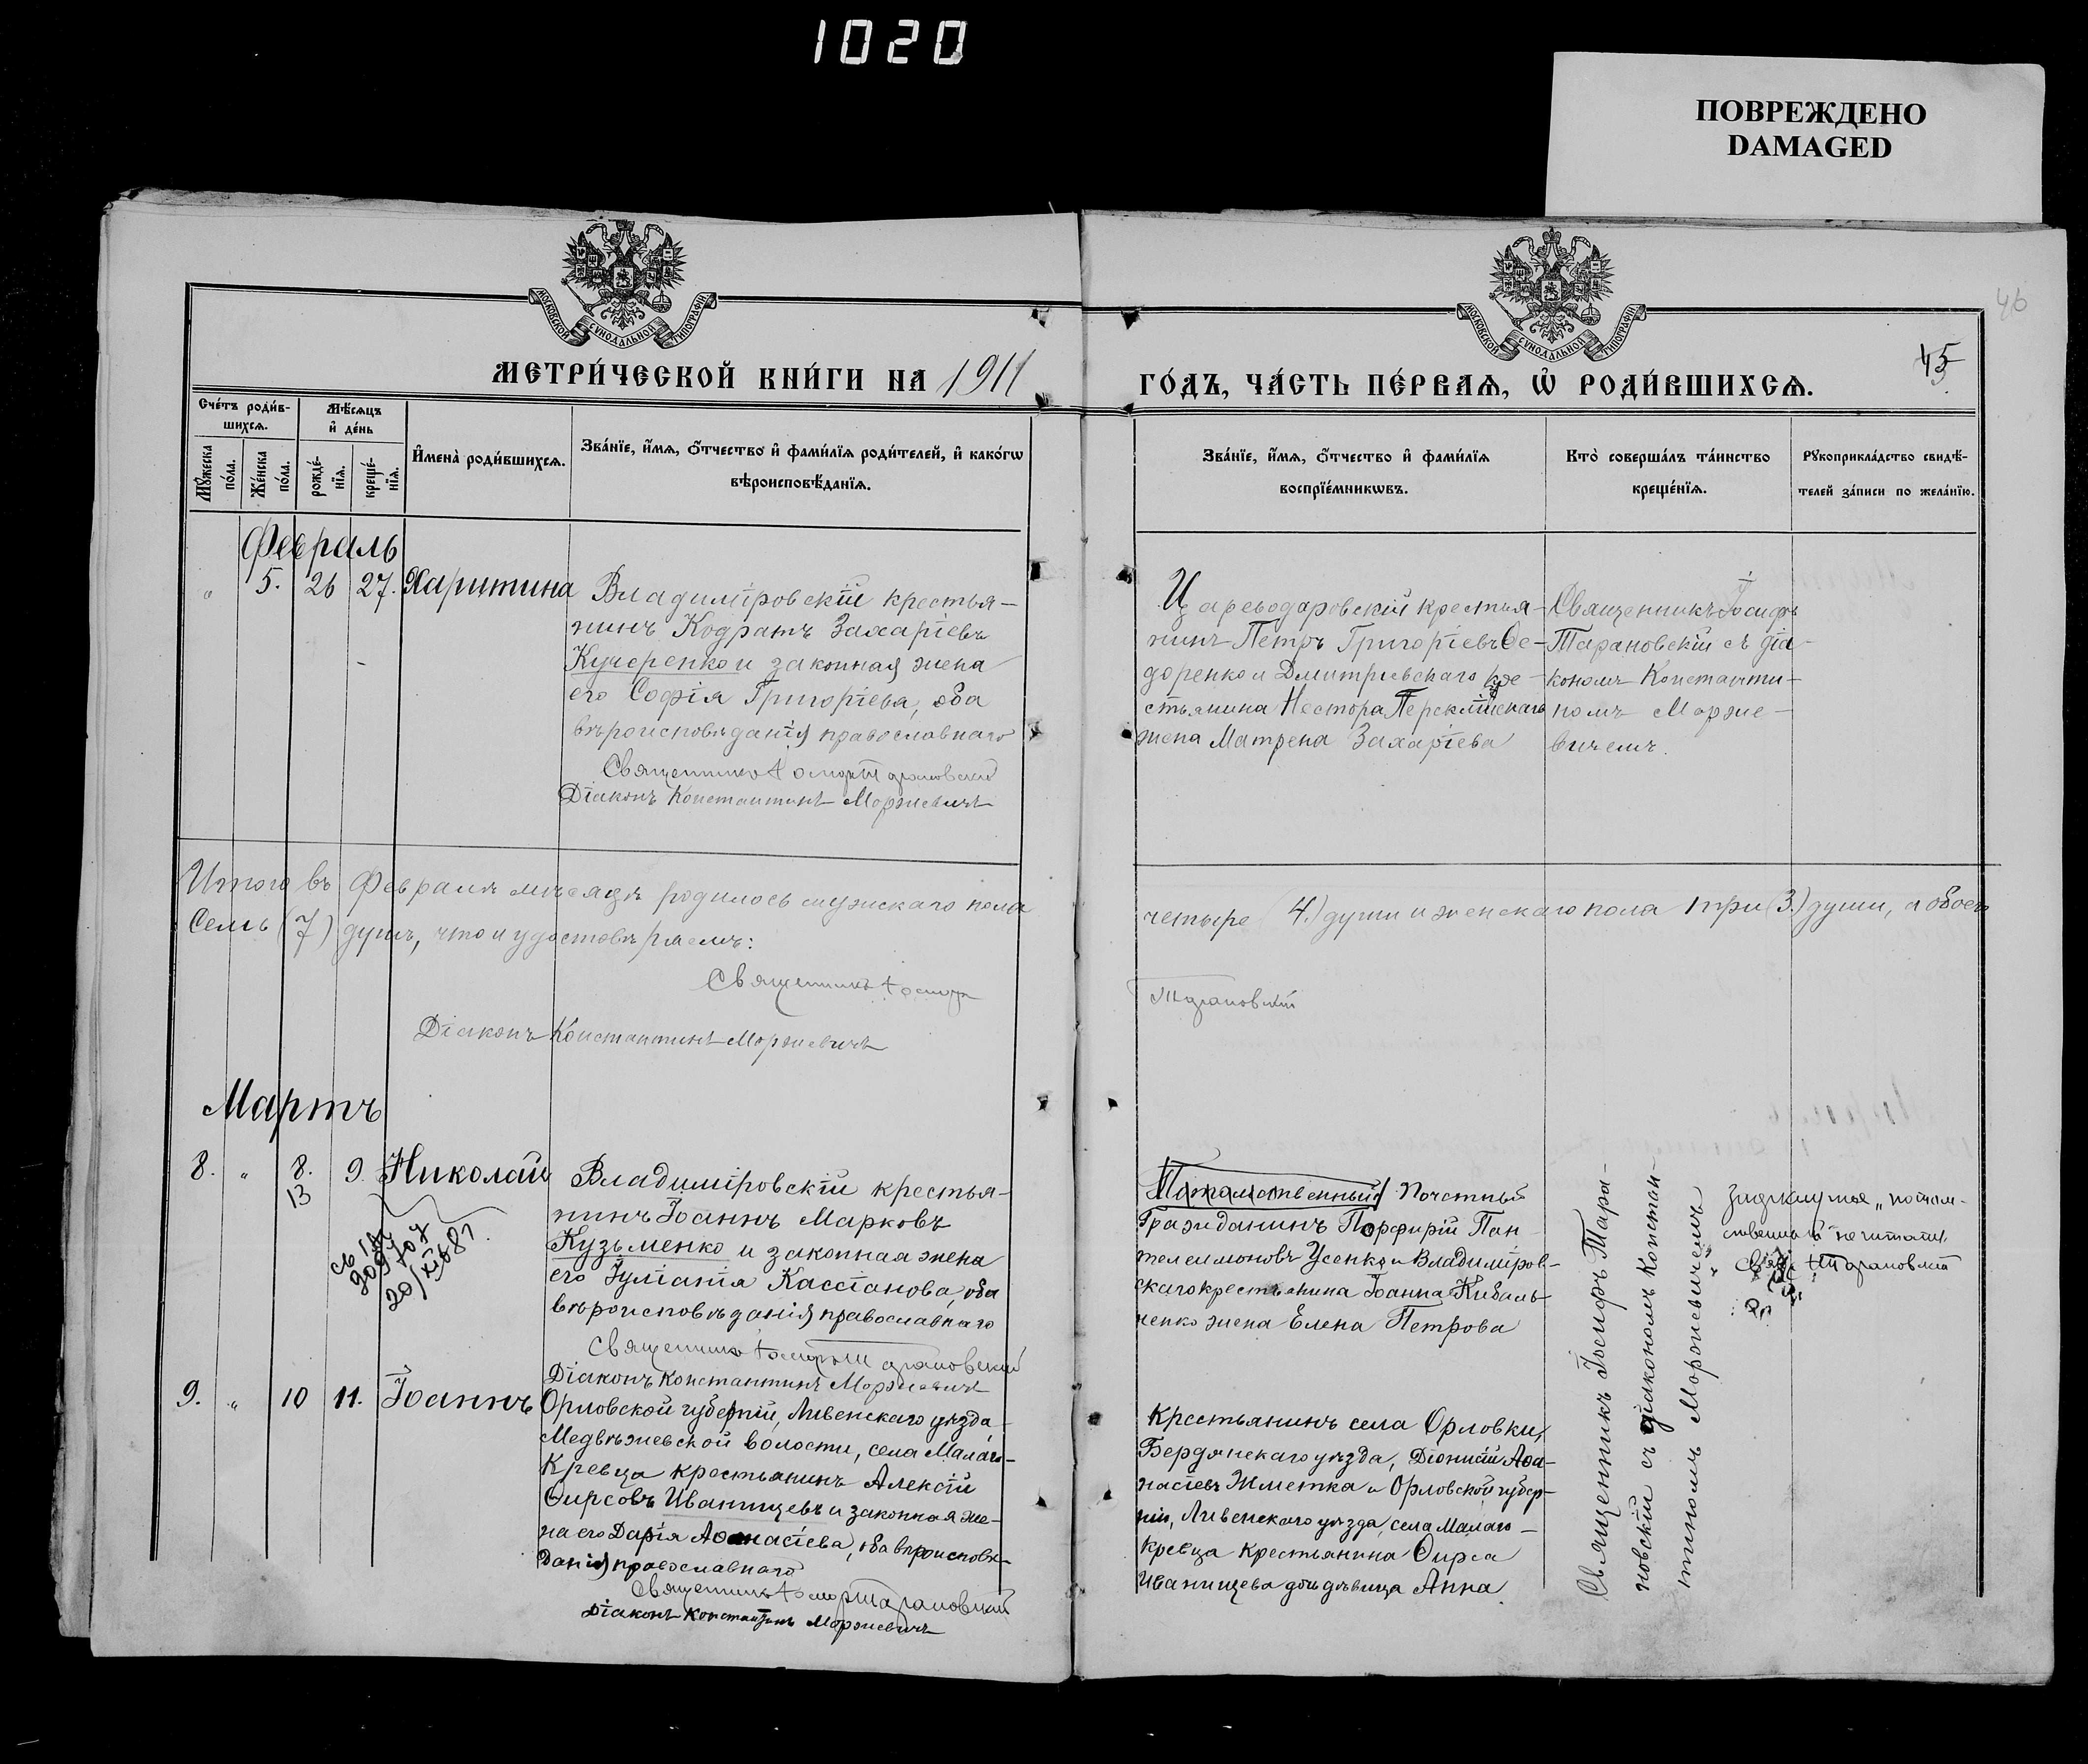 1020
ПОВРЕЖДЕНО
DAMAGED
46
45
МОСКОВСКОЙ СѴНОДАЛЬНОЙ ТИПОГРАФІИ
МОСКОВСКОЙ СѴНОДАЛЬНОЙ ТИПОГРАФІИ
МЕТРИ́ЧЕСКОЙ КНИ́ГИ НА 1911
ГО́ДЪ, ЧА́СТЬ ПЕ́РВАѦ, Ѡ҆ РОДИ́ВШИХСѦ.
Сче́тъ роди́в-
шихсѧ.
Мѣ́сѧцъ
и҆ де́нь
Мꙋ́жеска
по́ла.
Же́нска
по́ла.
рожде́-
нїѧ.
креще́-
нїѧ.
И҆мена̀ роди́вшихсѧ.
Зва́нїе, и҆́мѧ, ѻ҆́тчество и҆ фами́лїѧ роди́телей, и҆ како́гѡ
вѣроисповѣ́данїѧ.
Зва́нїе, и҆́мѧ, ѻ҆́тчество и҆ фами́лїѧ
воспрїе́мникѡвъ.
Кто̀ соверша́лъ та́инство
креще́нїѧ.
Рꙋкоприкла́дство свидѣ́-
телей за́писи по жела́нїю.
Февраль
" 5. 26 27. Харитина
Владимíровскій крестья-
нинъ Кодратъ Захаріевъ
Кучеренко и законная жена
его Софія Григоріева, оба
вѣроисповѣданія православнаго
Священникъ Іосифъ Тарановскій
Діаконъ Константинъ Моржевичъ
Цареводаровскій крестья-
нинъ Петръ Григоріевъ Ѳе-
доренко и Дмитріевскаго кре-
стьянина Нестора
жена Матрена Захаріева
Священникъ Іосифъ
Тарановскій съ діа-
кономъ Константи-
номъ Морже-
вичемъ.
Итого въ Февралѣ мѣсяцѣ родилось мужскаго пола
четыре (4.) души и женскаго пола три (3.) души, а обоего
Семь (7) душъ, что и удостовѣряемъ:
Священникъ Іосифъ
Тарановскій
Діаконъ Константинъ Моржевичъ
Мартъ
8. " 8. 9. Николай
13
Владимíровскій крестья-
нинъ Іоаннъ Марковъ
Кузьменко и законная жена
его Іуліанія Кассіанова, оба
вѣроисповѣданія православнаго
Священникъ Іосифъ Тарановскій
Діаконъ Константинъ Моржевичъ
Потомственный Почетный
Гражданинъ Порфирій Пан-
телеимоновъ Усенко и Владиміров-
скаго крестьянина Іоанна Кибаль-
ченко жена Елена Петрова
Священникъ Іосифъ Тара-
новскій съ діакономъ Констан-
тиномъ Моржевичемъ
Зачеркнутое „потом-
ственный" не читать
Свящ. І Тарановскій
9. " 10 11. Іоаннъ
Орловской губерніи, Ливенскаго уѣзда
Медвѣжевской волости, села Малаго-
Кревца крестьянинъ Алексій
Ѳирсовъ Иванищевъ и законная же-
на его Дарія Аѳанасіева, оба вѣроисповѣ-
данія православнаго
Священникъ Іосифъ Тарановскій
Діаконъ Константинъ Моржевичъ
Крестьянинъ села Орловки,
Бердянскаго уѣзда, Діонисій Аѳа-
насіевъ Жметка и Орловской губер-
ніи, Ливенскаго уѣзда, села Малаго-
Кревца крестьянина Ѳирса
Иванищева дочь дѣвица Анна